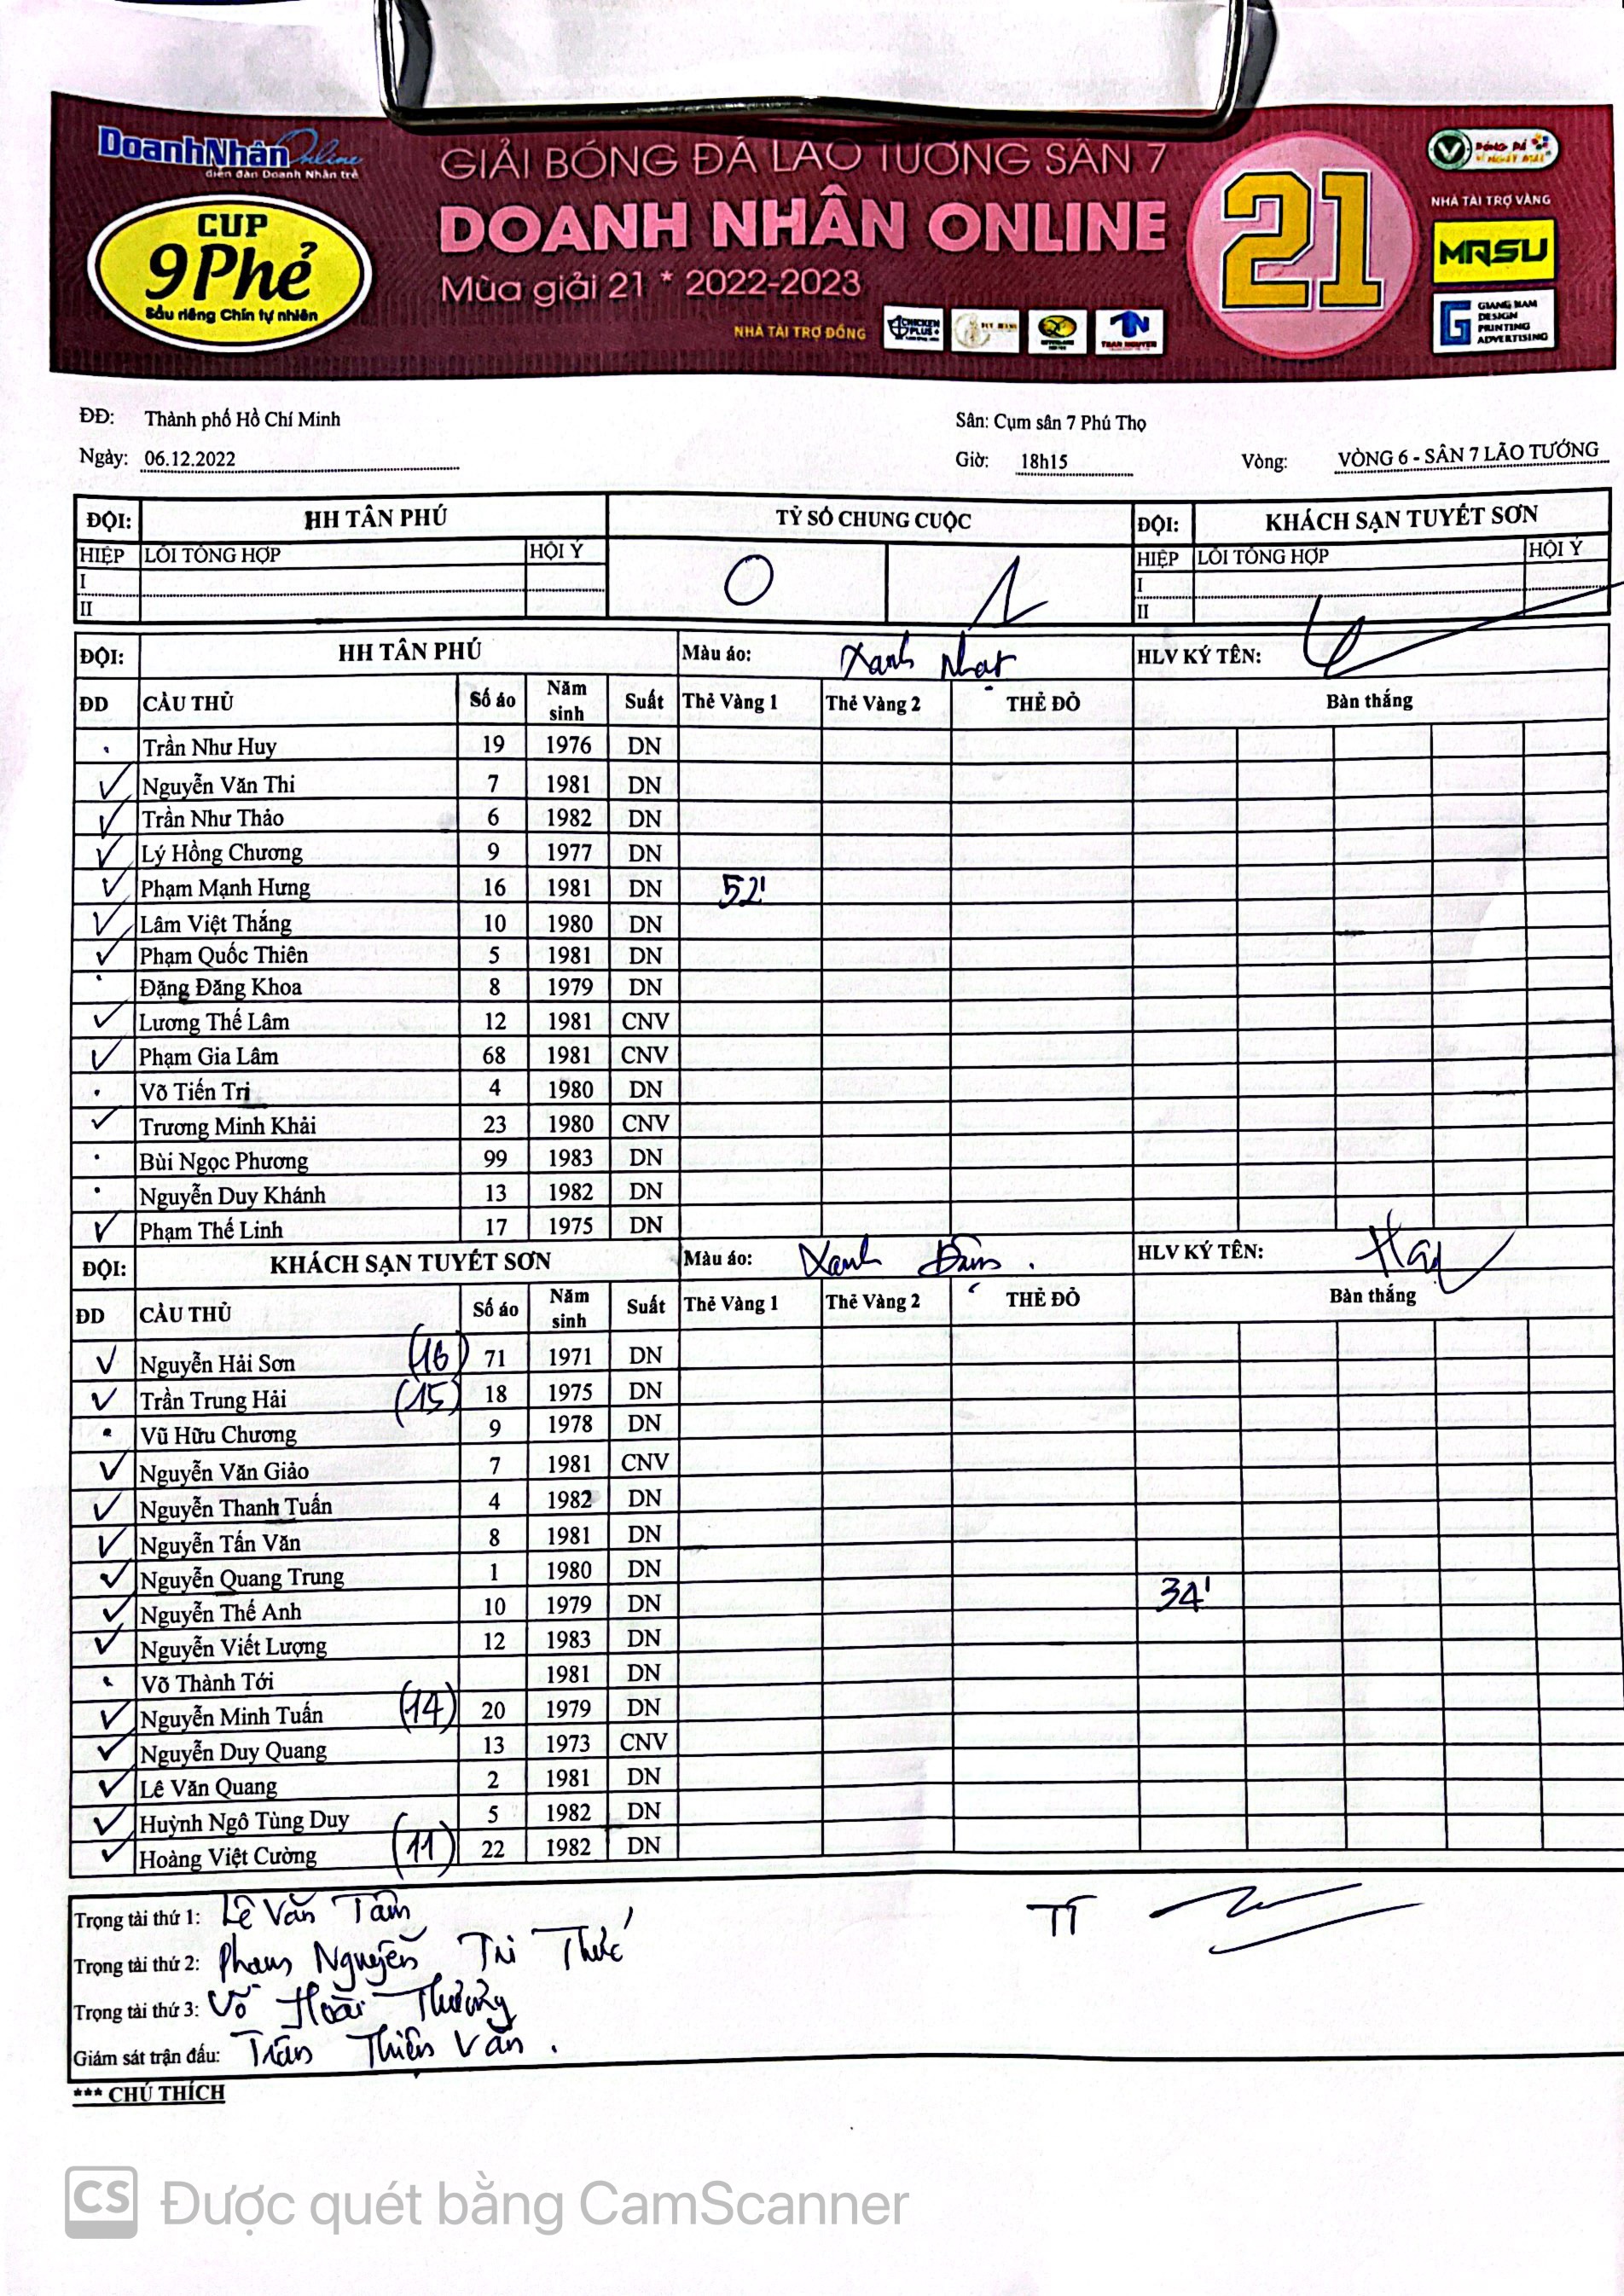 DoanhNhân Online
diễn đàn Doanh Nhân trẻ
CUP
9Phẻ
Sầu riêng Chín tự nhiên
GIẢI BÓNG ĐÁ LÃO TƯỚNG SÂN 7
DOANH NHÂN ONLINE
Mùa giải 21 * 2022-2023
NHÀ TÀI TRỢ ĐỒNG
CHICKEN PLUS+
21
NHÀ TÀI TRỢ VÀNG
MRSU
GIANG NAM
DESIGN
PRINTING
ADVERTISING
ĐĐ: Thành phố Hồ Chí Minh Sân: Cụm sân 7 Phú Thọ
Ngày: 06.12.2022 Giờ: 18h15 Vòng: VÒNG 6 - SÂN 7 LÃO TƯỚNG
ĐỘI: HH TÂN PHÚ TỶ SỐ CHUNG CUỘC ĐỘI: KHÁCH SẠN TUYẾT SƠN
HIỆP LỖI TỔNG HỢP HỘI Ý 0 1 HIỆP LỖI TỔNG HỢP HỘI Ý
I I
II II
ĐỘI: HH TÂN PHÚ Màu áo: Xanh Nhạt HLV KÝ TÊN:
ĐD CẦU THỦ Số áo Năm sinh Suất Thẻ Vàng 1 Thẻ Vàng 2 THẺ ĐỎ Bàn thắng
Trần Như Huy 19 1976 DN
✓ Nguyễn Văn Thi 7 1981 DN
✓ Trần Như Thảo 6 1982 DN
✓ Lý Hồng Chương 9 1977 DN
✓ Phạm Mạnh Hưng 16 1981 DN 52'
✓ Lâm Việt Thắng 10 1980 DN
✓ Phạm Quốc Thiên 5 1981 DN
Đặng Đăng Khoa 8 1979 DN
✓ Lương Thế Lâm 12 1981 CNV
✓ Phạm Gia Lâm 68 1981 CNV
Võ Tiến Trị 4 1980 DN
✓ Trương Minh Khải 23 1980 CNV
Bùi Ngọc Phương 99 1983 DN
Nguyễn Duy Khánh 13 1982 DN
✓ Phạm Thế Linh 17 1975 DN
ĐỘI: KHÁCH SẠN TUYẾT SƠN Màu áo: Xanh Đậm. HLV KÝ TÊN:
ĐD CẦU THỦ Số áo Năm sinh Suất Thẻ Vàng 1 Thẻ Vàng 2 THẺ ĐỎ Bàn thắng
✓ Nguyễn Hải Sơn (16) 71 1971 DN
✓ Trần Trung Hải (15) 18 1975 DN
Vũ Hữu Chương 9 1978 DN
✓ Nguyễn Văn Giảo 7 1981 CNV
✓ Nguyễn Thanh Tuấn 4 1982 DN
✓ Nguyễn Tấn Văn 8 1981 DN
✓ Nguyễn Quang Trung 1 1980 DN
✓ Nguyễn Thế Anh 10 1979 DN 34'
✓ Nguyễn Viết Lượng 12 1983 DN
Võ Thành Tới 1981 DN
✓ Nguyễn Minh Tuấn (14) 20 1979 DN
✓ Nguyễn Duy Quang 13 1973 CNV
✓ Lê Văn Quang 2 1981 DN
✓ Huỳnh Ngô Tùng Duy 5 1982 DN
✓ Hoàng Việt Cường (11) 22 1982 DN
Trọng tài thứ 1: Lê Văn Tâm
Trọng tài thứ 2: Phạm Nguyễn Tri Thức
Trọng tài thứ 3: Võ Hoài Thương
Giám sát trận đấu: Trần Thiện Văn.
*** CHÚ THÍCH
CS Được quét bằng CamScanner